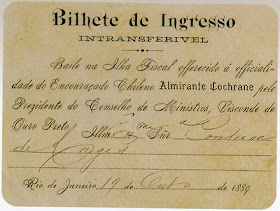 Bilhete de Ingresso
INTRANSFERIVEL
Baile na Ilha Fiscal offerecido á officiali-
dade do Encouraçado Chileno Almirante Cochrane pelo
Prezidente do Conselho de Ministros, Visconde de
Ouro Preto. Illm. Snr. Condessa
de
Rio de Janeiro, 19 de Outo de 1889